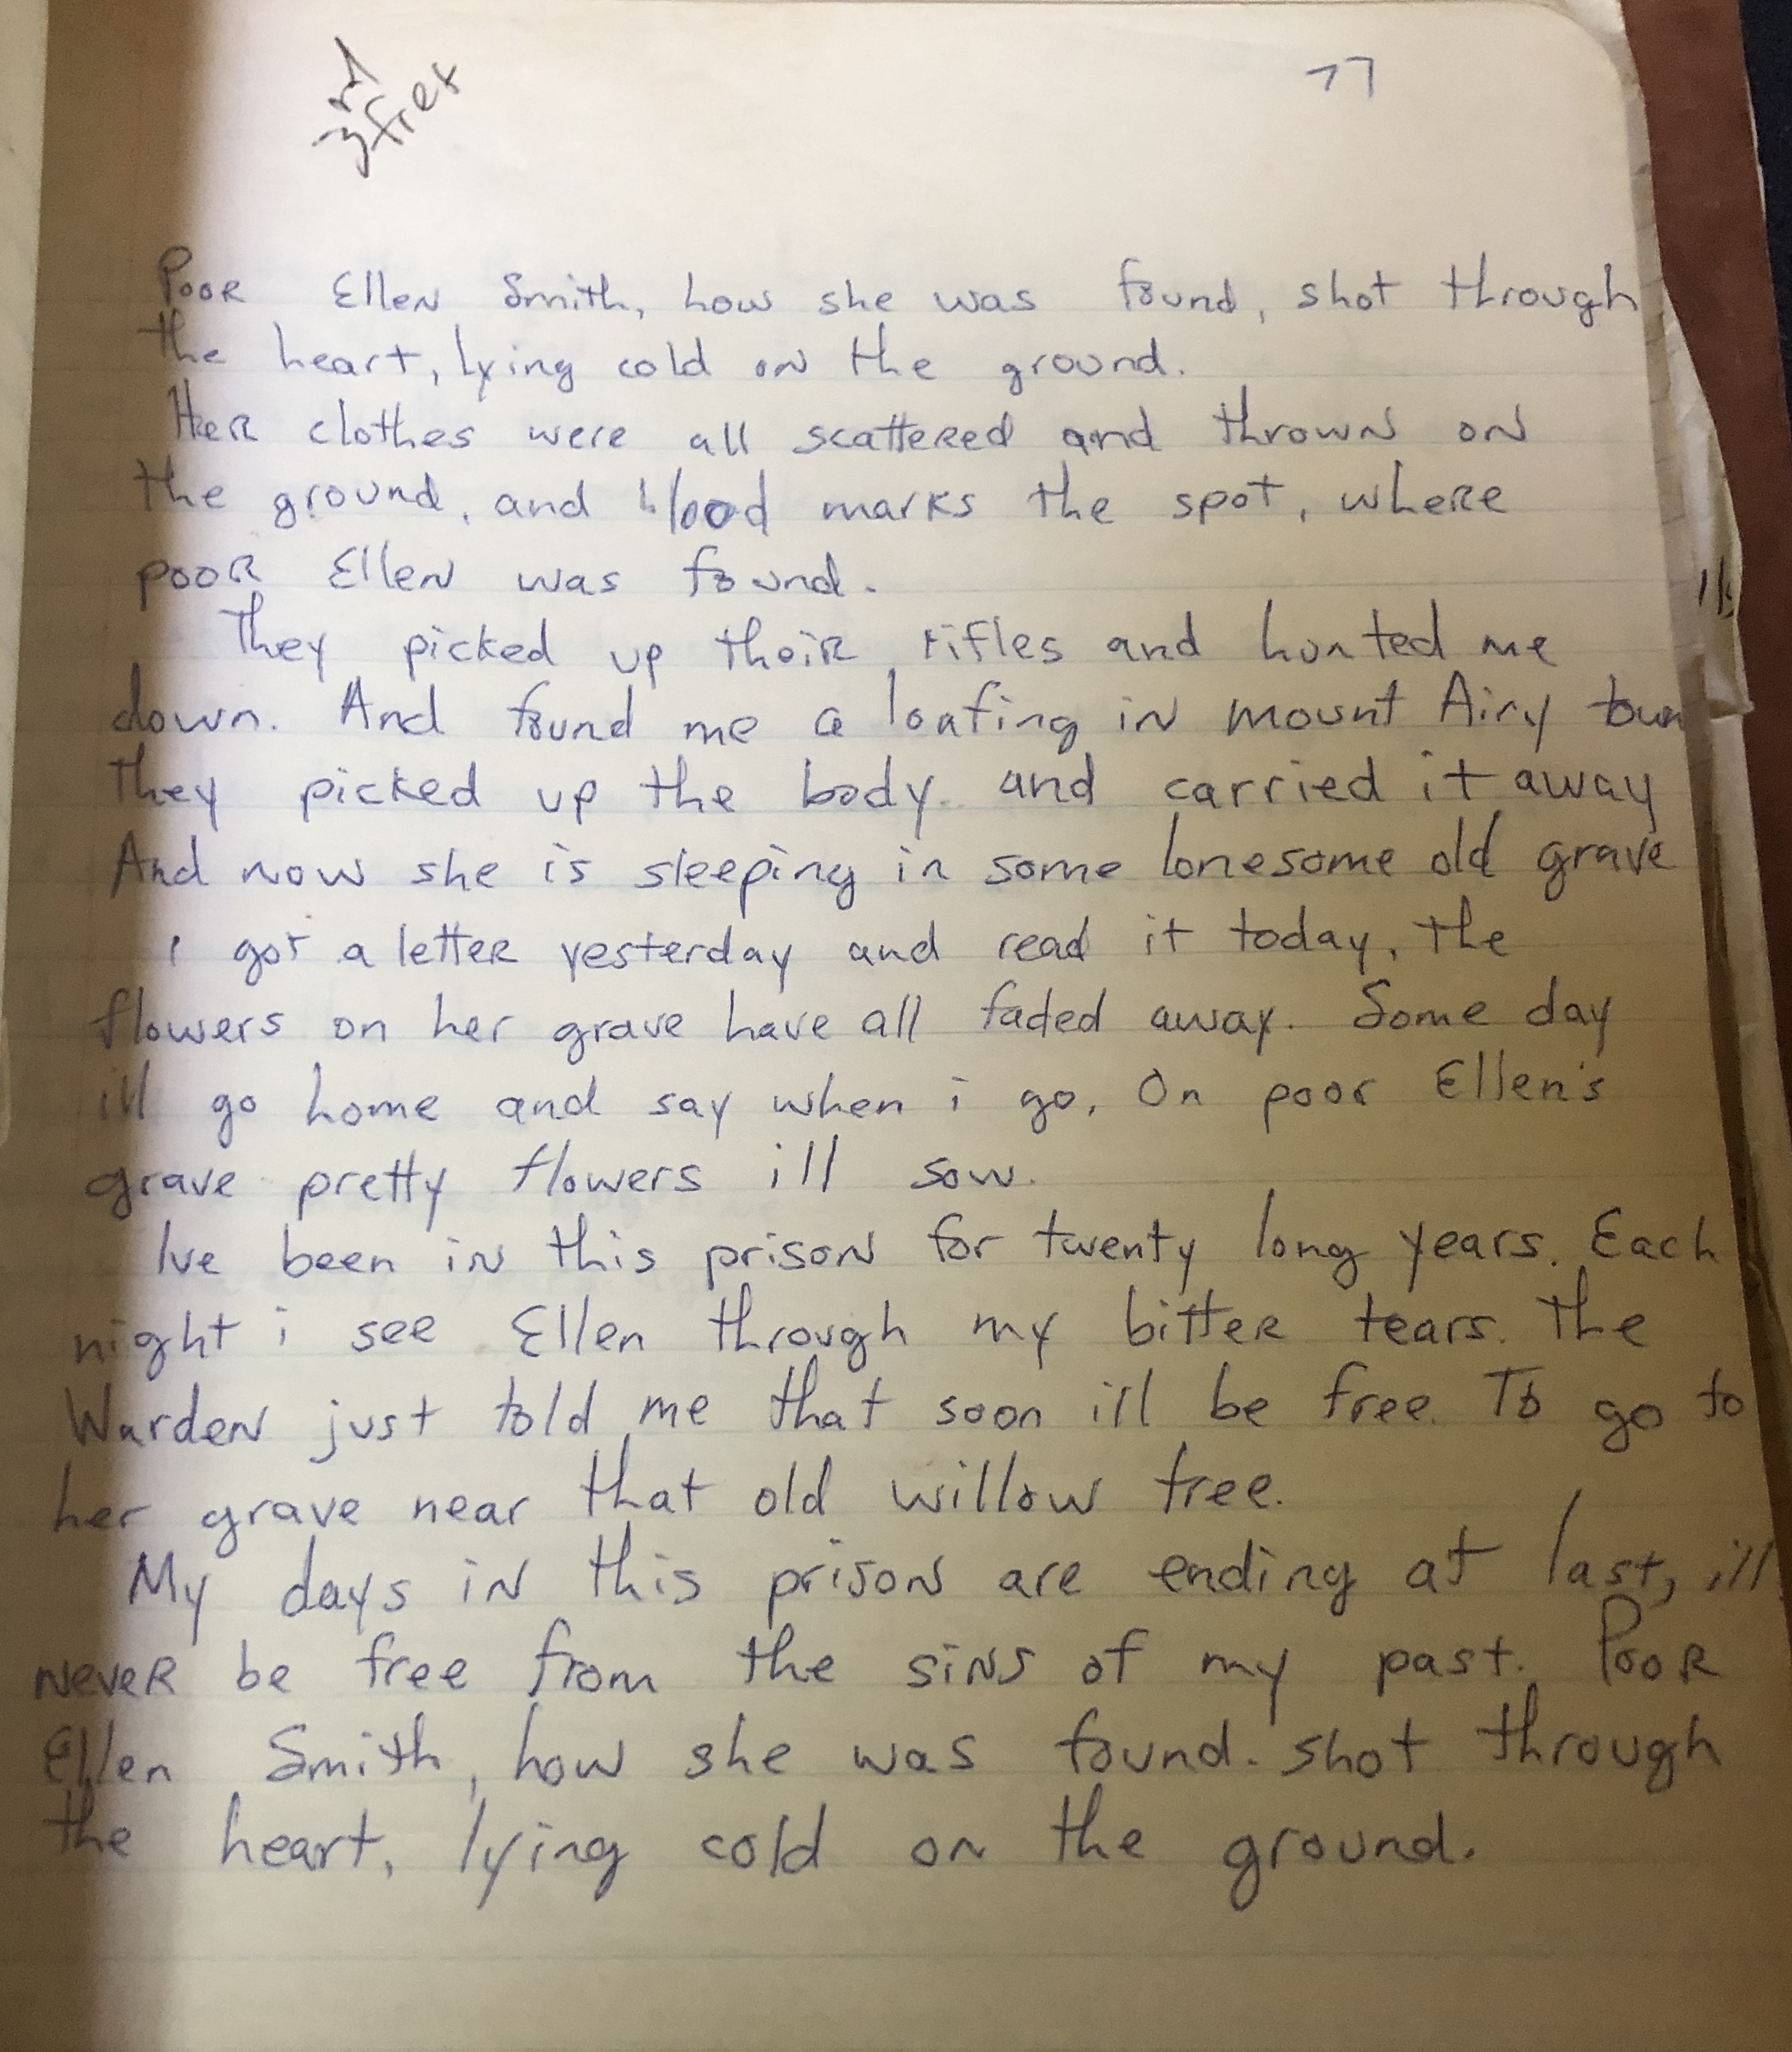 3rd fret
77
Poor Ellen Smith, how she was found, shot through
the heart, lying cold on the ground.
Her clothes were all scattered and thrown on
the ground, and blood marks the spot, where
poor Ellen was found.
They picked up their rifles and hunted me
down. And found me a loafing in mount Airy town
they picked up the body and carried it away
And now she is sleeping in some lonesome old grave
I got a letter yesterday and read it today, the
flowers on her grave have all faded away. Some day
ill go home and say when i go, On poor Ellen's
grave pretty flowers ill sow.
Ive been in this prison for twenty long years. Each
night i see Ellen through my bitter tears. The
Warden just told me that soon ill be free. To go to
her grave near that old willow tree.
My days in this prison are ending at last, ill
never be free from the sins of my past. Poor
Ellen Smith, how she was found. shot through
the heart, lying cold on the ground.